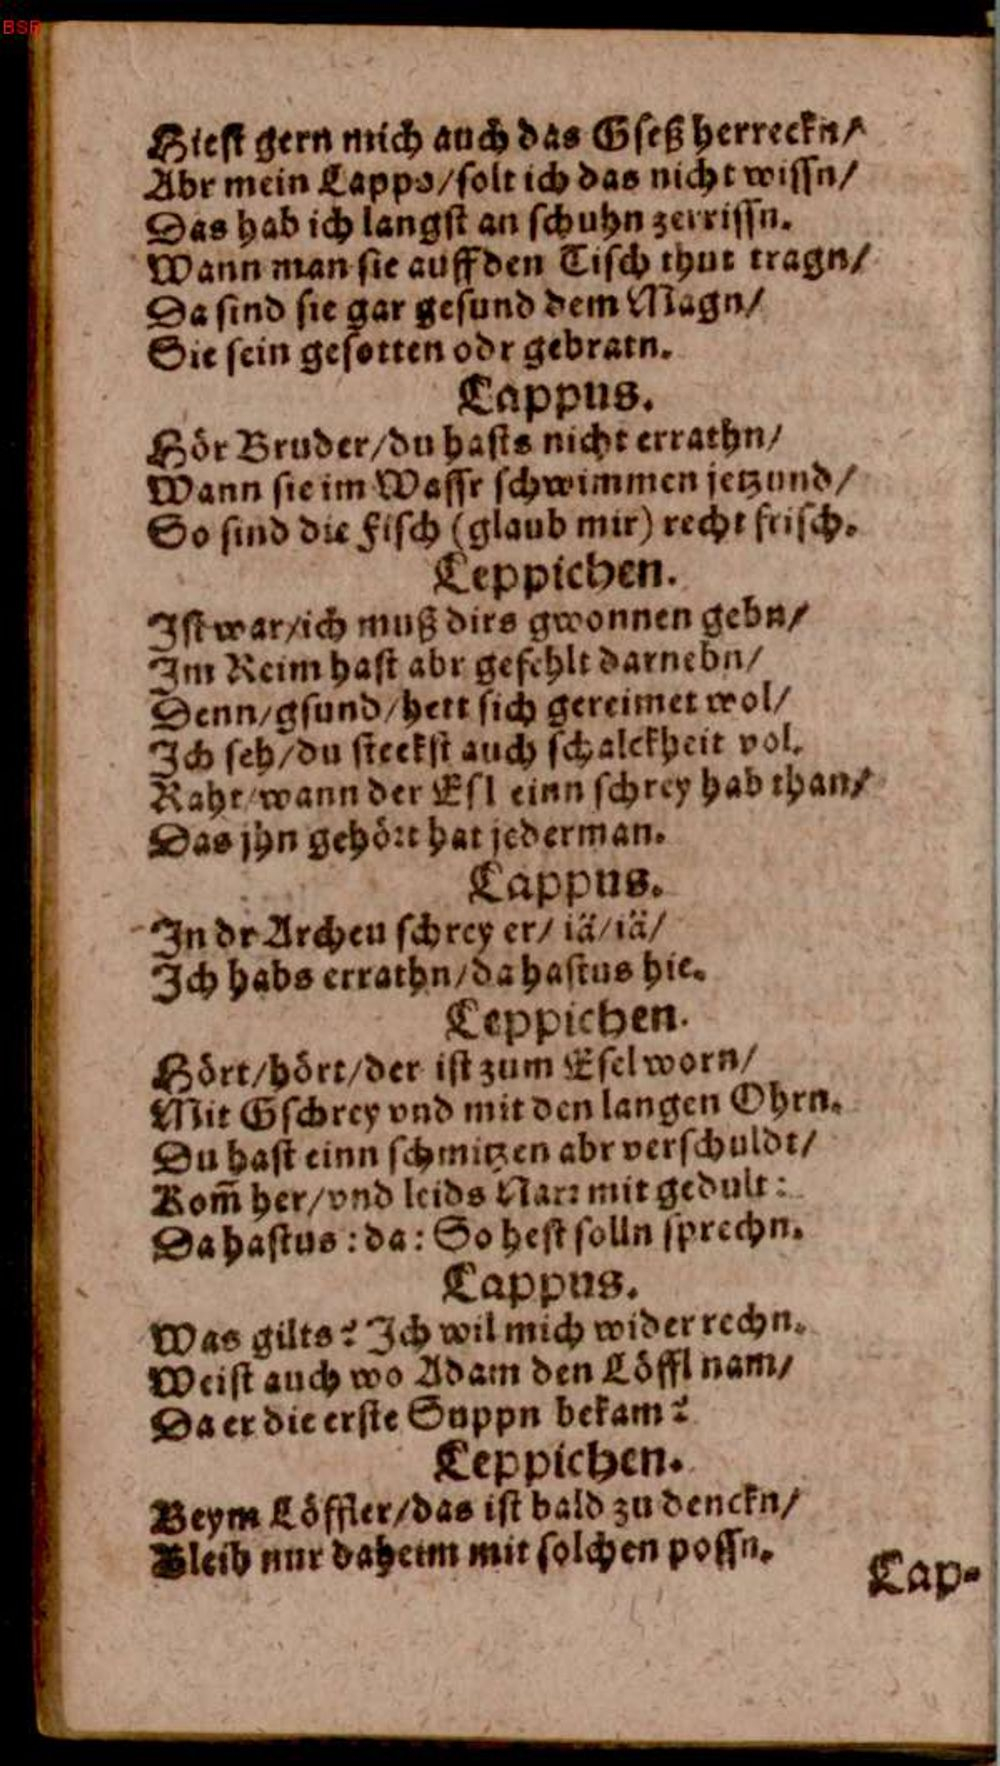 BSB
Hiest gern mich auch das Gseß herreckn/
Abr mein Lappe/solt ich das nicht wissn/
Das hab ich langst an schuhn zerrissn.
Wann man sie auff den Tisch thut tragn/
Da sind sie gar gesund dem Magn/
Sie sein gesotten odr gebratn.
Lappus.
Hör Bruder/du hasts nicht errathn/
Wann sie im Wassr schwimmen jetzund/
So sind die Fisch (glaub mir) recht frisch.
Leppichen.
Ist war/ich muß dirs gwonnen gebn/
Im Reim hast abr gefehlt darnebn/
Denn/gsund/hett sich gereimet wol/
Ich seh/du steckst auch schalckheit vol.
Raht/wann der Esl einn schrey hab than/
Das jhn gehört hat jederman.
Lappus.
In dr Archen schrey er/ iä/iä/
Ich habs errathn/da hastus hie.
Leppichen.
Hört/hört/der ist zum Esel worn/
Mit Gschrey vnd mit den langen Ohrn.
Du hast einn schmitzen abr verschuldt/
Kom̃ her/vnd leids Narr mit gedult:
Da hastus: da: So hest solln sprechn.
Lappus.
Was gilts? Ich wil mich widerrechn.
Weist auch wo Adam den Löffl nam/
Da er die erste Suppn bekam?
Leppichen.
Beym Löffler/das ist bald zu denckn/
Bleib nur daheim mit solchen possn.
Lap-